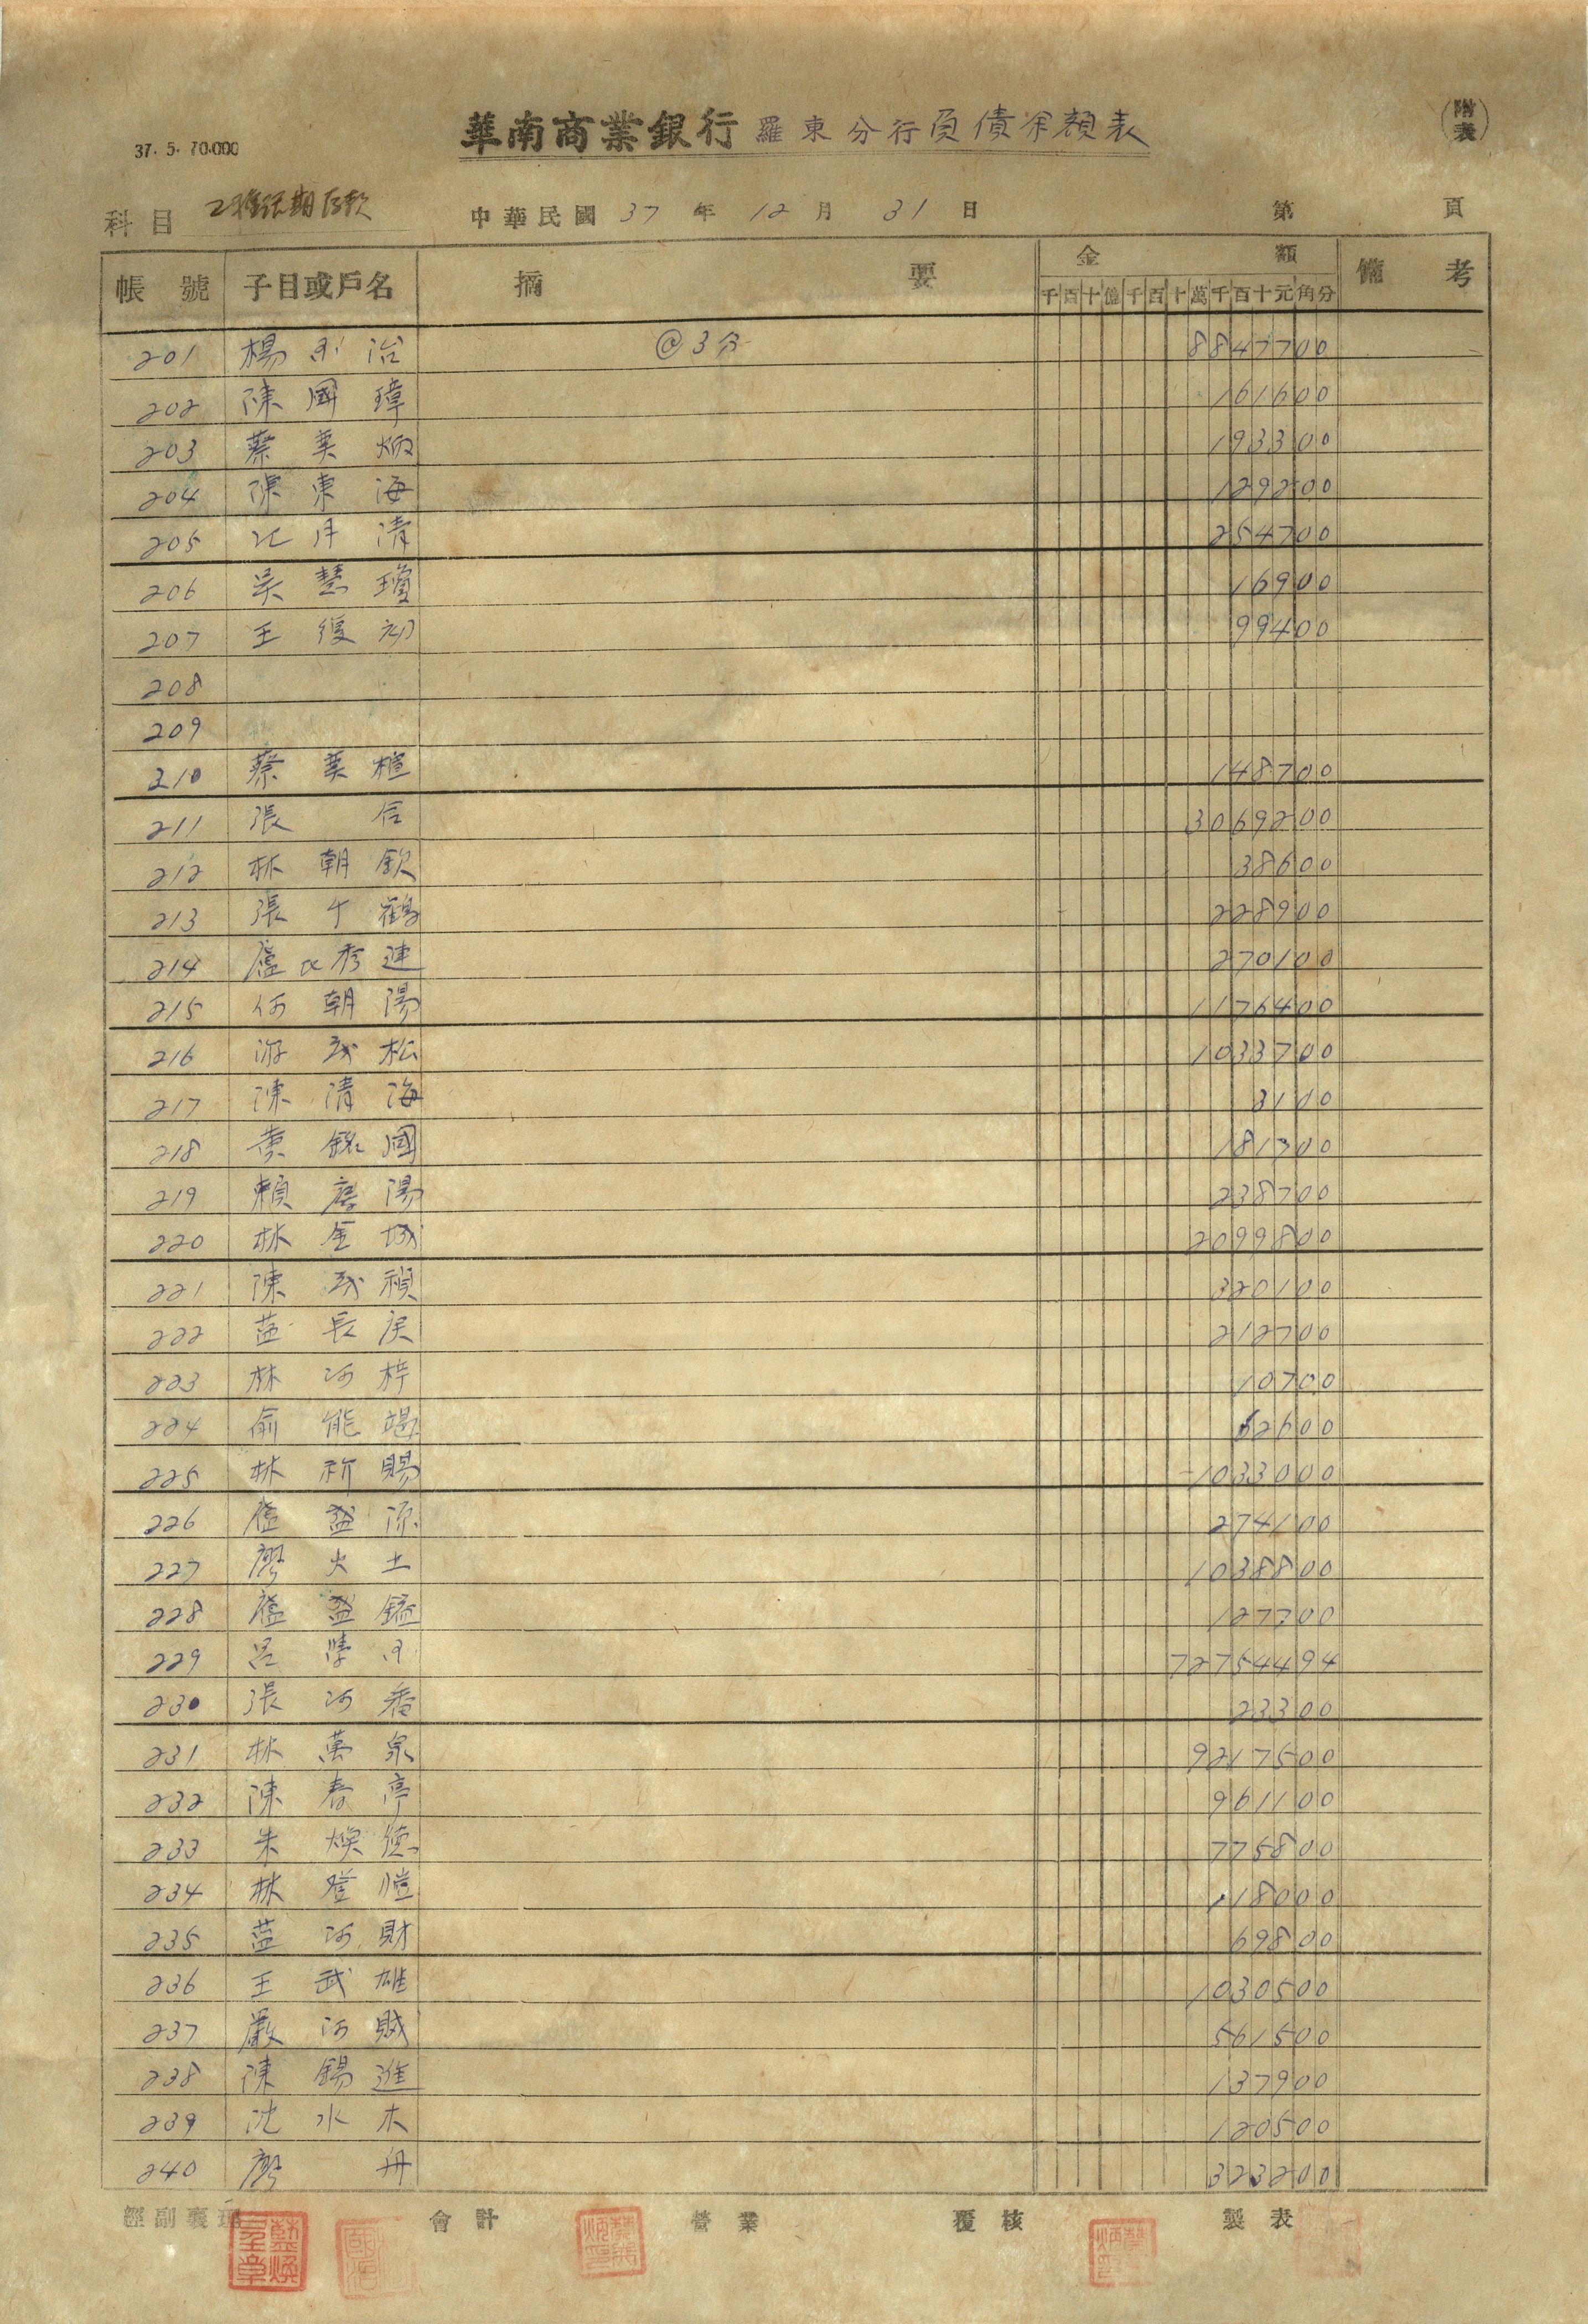 37. 5. 70.000
華南商業銀行 羅東分行負債余額表
(附表)
科目 乙種活期存款 中華民國 37 年 12 月 31 日 第 頁
帳號 子目或戶名 摘要 金額 備考
千百十億千百十萬千百十元角分
201 楊 治 @3分 8847700
202 陳國璋 161600
203 蔡葉炳 193300
204 陳東海 129200
205 沈月清 254700
206 吳慧瓊 16900
207 王復初 99400
208
209
210 蔡葉楦 148700
211 張 3069200
212 林朝欽 38600
213 張千鶴 228900
214 盧沈秀連 270100
215 何朝陽 1176400
216 游茂松 1033700
217 陳清海 3100
218 黃銀國 181300
219 賴陽 238700
220 林金城 2099800
221 陳茂禎 320100
222 藍長庚 212700
223 林河梓 10700
224 俞能 52600
225 林新賜 1033000
226 盧盛源 274100
227 廖火土 1038800
228 盧盛鎰 127700
229 呂 72754494
230 張河番 23300
231 林萬泉 9217500
232 陳春亭 961100
233 朱煥德 775800
234 林登 118000
235 藍河財 69800
236 王武雄 1030500
237 嚴河賊 561500
238 陳錫進 137900
239 沈水木 120500
240 廖舟 323200
經副襄理 會計 營業 覆核 製表